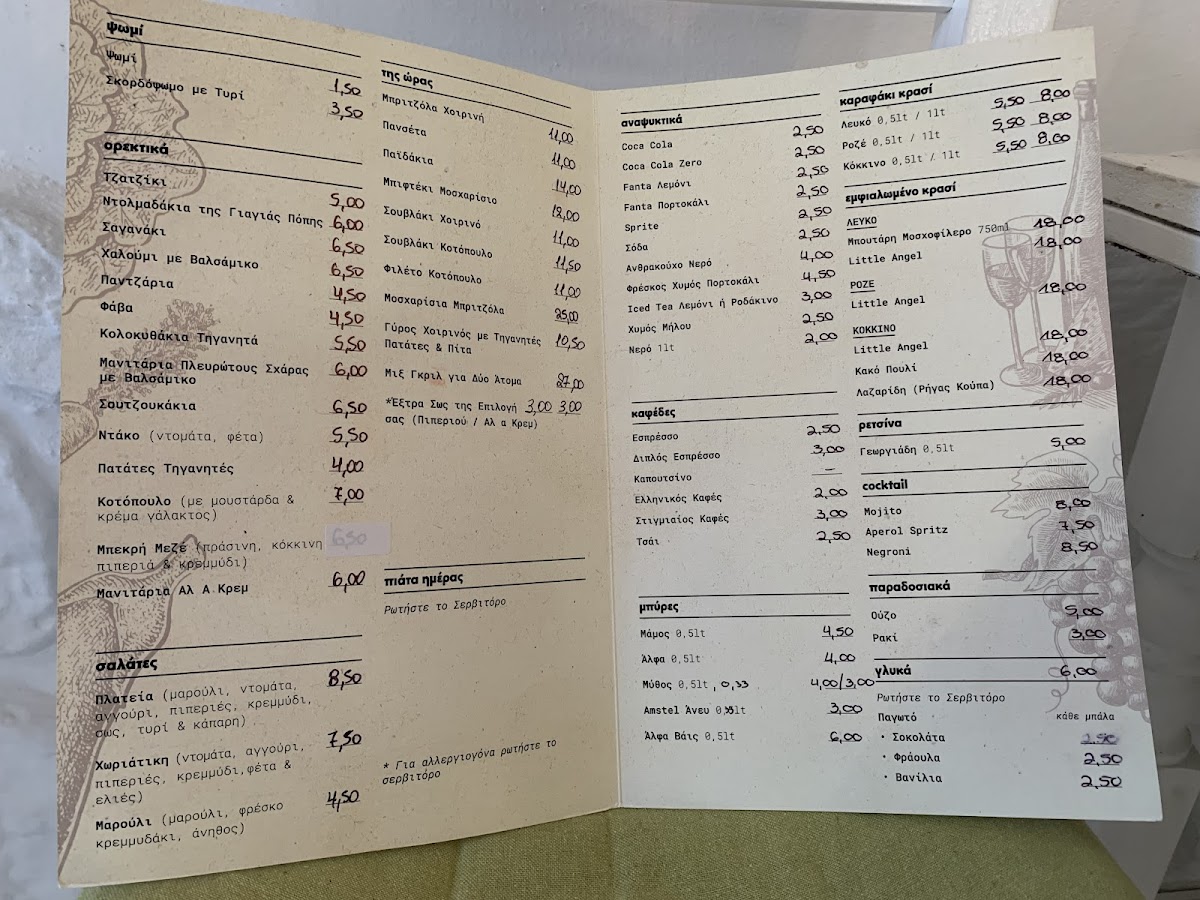 ψωμί
Ψωμί 1,50
Σκορδόψωμο με Τυρί 3,50
ορεκτικά
Τζατζίκι 5,00
Ντολμαδάκια της Γιαγιάς Πόπης 6,00
Σαγανάκι 6,50
Χαλούμι με Βαλσάμικο 6,50
Παντζάρια 4,50
Φάβα 4,50
Κολοκυθάκια Τηγανητά 5,50
Μανιτάρια Πλευρώτους Σχάρας 6,00
με Βαλσάμικο
Σουτζουκάκια 6,50
Ντάκο (ντομάτα, φέτα) 5,50
Πατάτες Τηγανητές 4,00
Κοτόπουλο (με μουστάρδα & 7,00
κρέμα γάλακτος)
Μπεκρή Μεζέ (πράσινη, κόκκινη 6,50
πιπεριά & κρεμμύδι)
Μανιτάρια Αλ Α Κρεμ 6,00
σαλάτες
Πλατεία (μαρούλι, ντομάτα, 8,50
αγγούρι, πιπεριές, κρεμμύδι,
σως, τυρί & κάπαρη)
Χωριάτικη (ντομάτα, αγγούρι, 7,50
πιπεριές, κρεμμύδι,φέτα &
ελιές)
Μαρούλι (μαρούλι, φρέσκο 4,50
κρεμμυδάκι, άνηθος)
της ώρας
Μπριτζόλα Χοιρινή 11,00
Πανσέτα 11,00
Παϊδάκια 14,00
Μπιφτέκι Μοσχαρίσιο 12,00
Σουβλάκι Χοιρινό 11,00
Σουβλάκι Κοτόπουλο 11,50
Φιλέτο Κοτόπουλο 11,00
Μοσχαρίσια Μπριτζόλα 25,00
Γύρος Χοιρινός με Τηγανητές 10,50
Πατάτες & Πίτα
Μιξ Γκριλ για Δύο Άτομα 27,00
*Έξτρα Σως της Επιλογή 3,00 3,00
σας (Πιπεριού / Αλ α Κρεμ)
πιάτα ημέρας
Ρωτήστε το Σερβιτόρο
* Για αλλεργιογόνα ρωτήστε το
σερβιτόρο
αναψυκτικά
Coca Cola 2,50
Coca Cola Zero 2,50
Fanta Λεμόνι 2,50
Fanta Πορτοκάλι 2,50
Sprite 2,50
Σόδα 2,50
Ανθρακούχο Νερό 4,00
Φρέσκος Χυμός Πορτοκάλι 4,50
Iced Tea Λεμόνι ή Ροδάκινο 3,00
Χυμός Μήλου 2,50
Νερό 1lt 2,00
καφέδες
Εσπρέσσο 2,50
Διπλός Εσπρέσσο 3,00
Καπουτσίνο –
Ελληνικός Καφές 2,00
Στιγμιαίος Καφές 3,00
Τσάι 2,50
μπύρες
Μάμος 0,5lt 4,50
Άλφα 0,5lt 4,00
Μύθος 0,5lt , 0,33 4,00/3,00
Amstel Άνευ 3,00
Άλφα Βάις 0,5lt 6,00
καραφάκι κρασί
Λευκό 0,5lt / 1lt 5,50 8,00
Ροζέ 0,5lt / 1lt 5,50 8,00
Κόκκινο 0,5lt / 1lt 5,50 8,00
εμφιαλωμένο κρασί
ΛΕΥΚΟ
Μπουτάρη Μοσχοφίλερο 750ml 18,00
Little Angel 18,00
ΡΟΖΕ
Little Angel 18,00
ΚΟΚΚΙΝΟ
Little Angel 18,00
Κακό Πουλί 18,00
Λαζαρίδη (Ρήγας Κούπα) 18,00
ρετσίνα
Γεωργιάδη 0,5lt 5,00
cocktail
Mojito 8,00
Aperol Spritz 7,50
Negroni 8,50
παραδοσιακά
Ούζο 5,00
Ρακί 3,00
γλυκά 6,00
Ρωτήστε το Σερβιτόρο
Παγωτό κάθε μπάλα
• Σοκολάτα 2,50
• Φράουλα 2,50
• Βανίλια 2,50